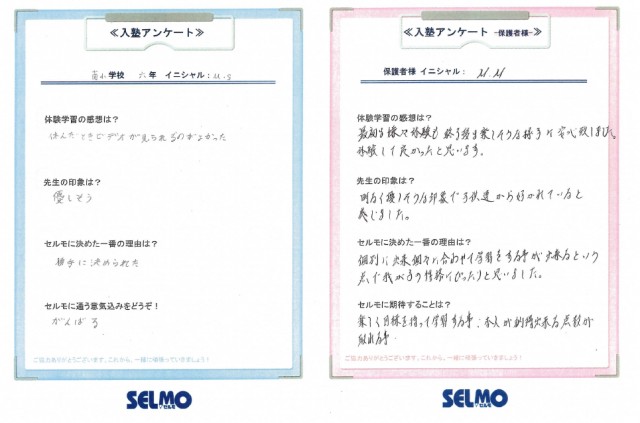 ≪入塾アンケート≫
南小学校 六年 イニシャル:M.S
体験学習の感想は?
休んだときでデスが見られるのがよかった
先生の印象は?
優しそう
セルモに決めた一番の理由は?
勝手に決められた
セルモに通う意気込みをどうぞ!
がんばる
ご協力ありがとうございます。これから、一緒に頑張っていきましょう!
SELMO
セルモ
≪入塾アンケート -保護者様-≫
保護者様 イニシャル: M.M
体験学習の感想は?
最初も嫌々体験も終了後も楽しそうな様子に安心致しました。
体験して良かったと思います。
先生の印象は?
明るく優しそうな印象で子供達から好かれていると
感じました。
セルモに決めた一番の理由は?
個別に出来個々に合わせて学習をする事が出来るという
点で我が子の性格にぴったりと思いました。
セルモに期待することは?
楽しく目標を持って学習する事・本人が納得出来る点数が
取れる事・
ご協力ありがとうございます。これから、一緒に頑張っていきましょう!
SELMO
セルモ